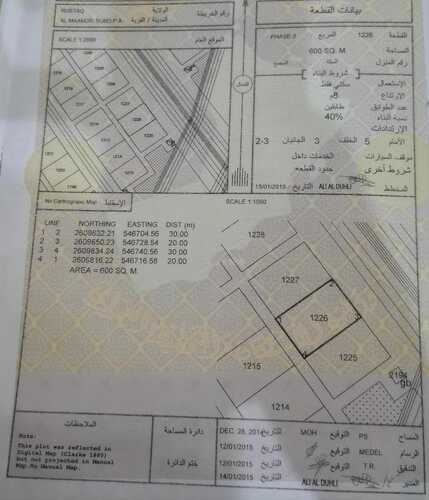 بيانات القطعة
القطعة 1226 المربع PHASE-2
المساحة 600 SQ. M.
رقم المنزل السكة المجمع
شروط البناء
الاستعمال سكني فقط
الارتفاع 8م
عدد الطوابق طابقين
نسبة البناء 40%
الارتدادات
الأمام 5 الخلف 3 الجانبان 2-3
موقف السيارات الخدمات داخل
شروط أخرى حدود القطعه
المخطط ALI AL DUHLI التاريخ 15/01/2015
RUSTAQ الولاية
رقم الخريطة
المدينة / القرية
SCALE 1:2500 الموقع العام
الشمال
1227
1226
1225
No Cartograpic Map الإسقاط SCALE 1:1000
LINE NORTHING EASTING DIST (m)
1 2 2609632.21 546704.56 30.00
2 3 2609650.23 546728.54 20.00
3 4 2609634.24 546740.56 30.00
4 1 2609616.22 546716.58 20.00
AREA = 600 SQ. M.
1228
1227
1226
1225
1215
1214
2
3
الملاحظات
Note:
This plot was reflected in
Digital Map (Clarke 1880)
but not projected in Manual
Map.No Manual Map.
دائرة المساحة
ختم الدائرة
المساح PS التوقيع MOH التاريخ DEC. 28, 2014
الرسام MEDEL التوقيع التاريخ 12/01/2015
التدقيق T.R. التوقيع التاريخ 12/01/2015
المدير ALI AL DUHLI التاريخ 14/01/2015